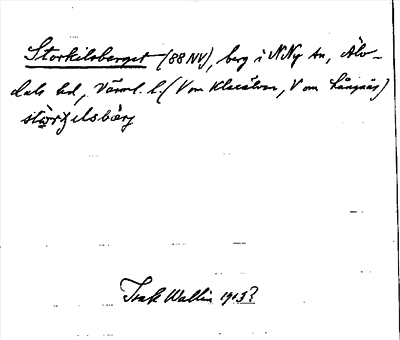 Storkilsberget (88 NV), berg i N Ny sn, Älv-
dals hd, Värml. l. (V om Klarälven, V om Långnäs)
Isak Wallin 1913?